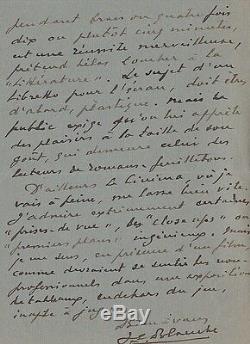 pendant trois ou quatre fois
dix ou plutôt cinq minutes,
est une réussite merveilleuse,
prétend hélas tomber à la
"littérature". Le sujet d'un
libretto pour l'écran, doit être
d'abord, plastique. Mais le
public exige qu'on lui apprête
des plaisirs à la taille de son
goût, qui demeure celui des
lecteurs de romans-feuilletons.
D'ailleurs le Cinéma, où je
vais à peine, me lasse bien vite
J'admire extrêmement certaines
"prises-de-vue", des "close-ups" ou
"premiers plans" ingénieux, mais
je me sens, en présence d'un film,
comme devraient se sentir les non-
professionnels dans une exposition
de tableaux, en dehors du jeu,
inapte à juger
Bien à vous
J. E. Blanche